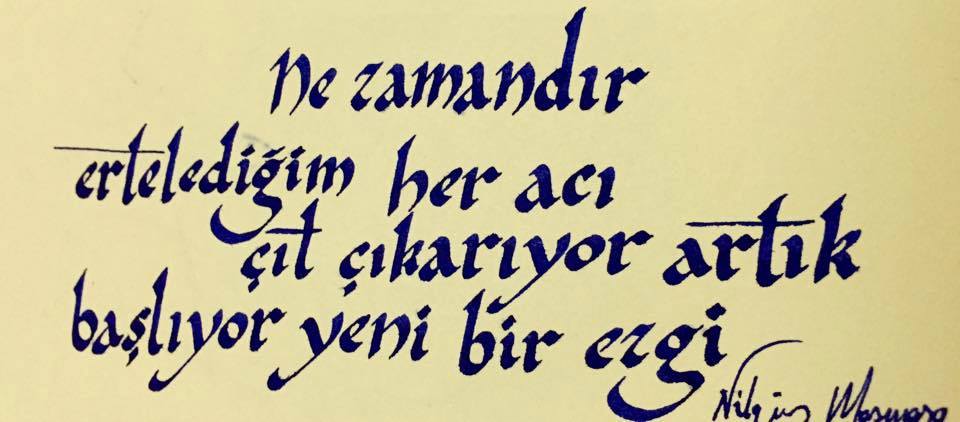 Ne zamandır
ertelediğim her acı
çıt çıkarıyor artık
başlıyor yeni bir ezgi
Nilgün Marmara